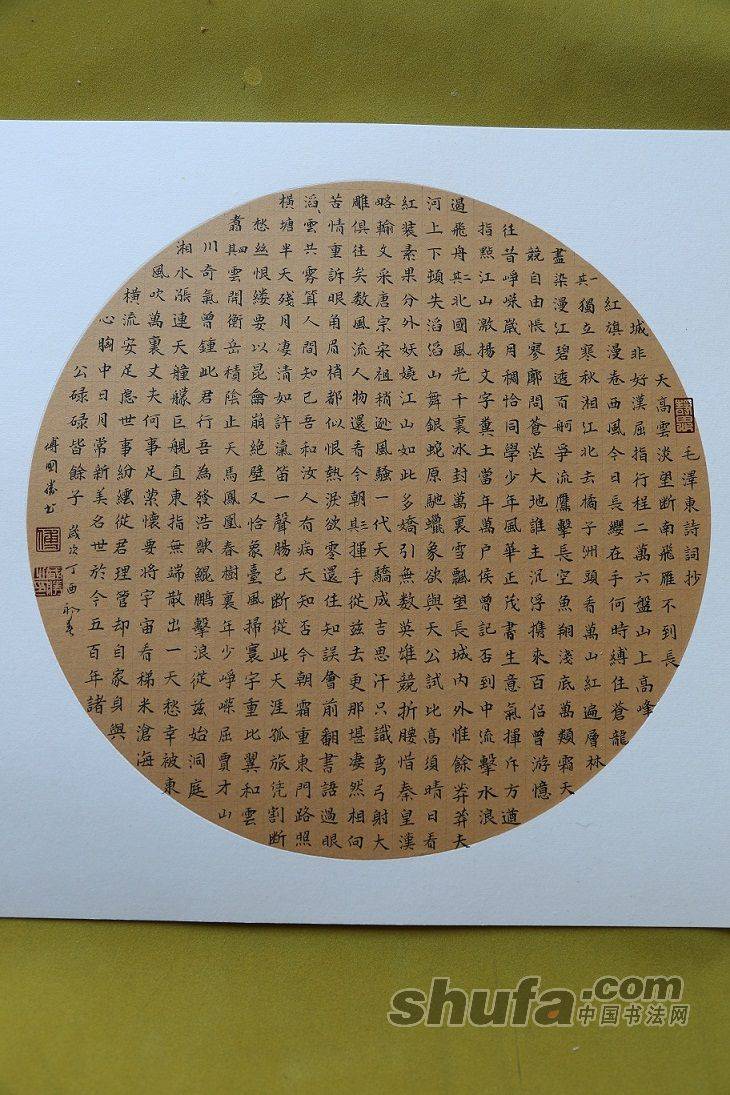 毛澤東詩詞抄
天高雲淡望斷南飛雁不到長
城非好漢屈指行程二萬六盤山上高峰
紅旗漫卷西風今日長纓在手何時縛住蒼龍
其一獨立寒秋湘江北去橘子洲頭看萬山紅遍層林
盡染漫江碧透百舸爭流鷹擊長空魚翔淺底萬類霜天
競自由悵寥廓問蒼茫大地誰主沉浮攜來百侶曾游憶
往昔崢嶸歲月稠恰同學少年風華正茂書生意氣揮斥方遒
指點江山激揚文字糞土當年萬戶侯曾記否到中流擊水浪
過飛舟其二北國風光千裏冰封萬裏雪飄望長城內外惟餘莽莽大
河上下頓失滔滔山舞銀蛇原馳蠟象欲與天公試比高須晴日看
紅裝素果分外妖嬈江山如此多嬌引無數英雄競折腰惜秦皇漢
略輸文采唐宗宋祖稍遜風騷一代天驕成吉思汗只識彎弓射大
雕俱往矣數風流人物還看今朝其三揮手從茲去更那堪凄然相向
苦情重訴眼角眉梢都似恨熱淚欲零還住知誤會前翻書語過眼
滔、雲共霧算人間知己吾和汝人有病天知否今朝霜重東門路照
橫塘半天殘月凄清如許氣笛一聲腸已斷從此天涯孤旅凭割斷
愁絲恨縷要以昆侖崩絕壁又恰象臺風掃寰宇重比翼和雲
翥其四雲開衡岳積陰止天馬鳳凰春樹裏年少崢嶸屈賈才山
川奇氣曾鍾此君行吾為發浩歌鯤鵬擊浪從茲始洞庭
湘水漲連天艟艨巨艦直東指無端散出一天愁幸被東
風吹萬裏丈夫何事足縈懷要將宇宙看稊米滄海
橫流安足慮世事紛纭從君理管却自家身與
心胸中日月常新美名世於今五百年諸
公碌碌皆餘子 歲次丁酉初夏
傅國勝書
shufa.com
中国书法网